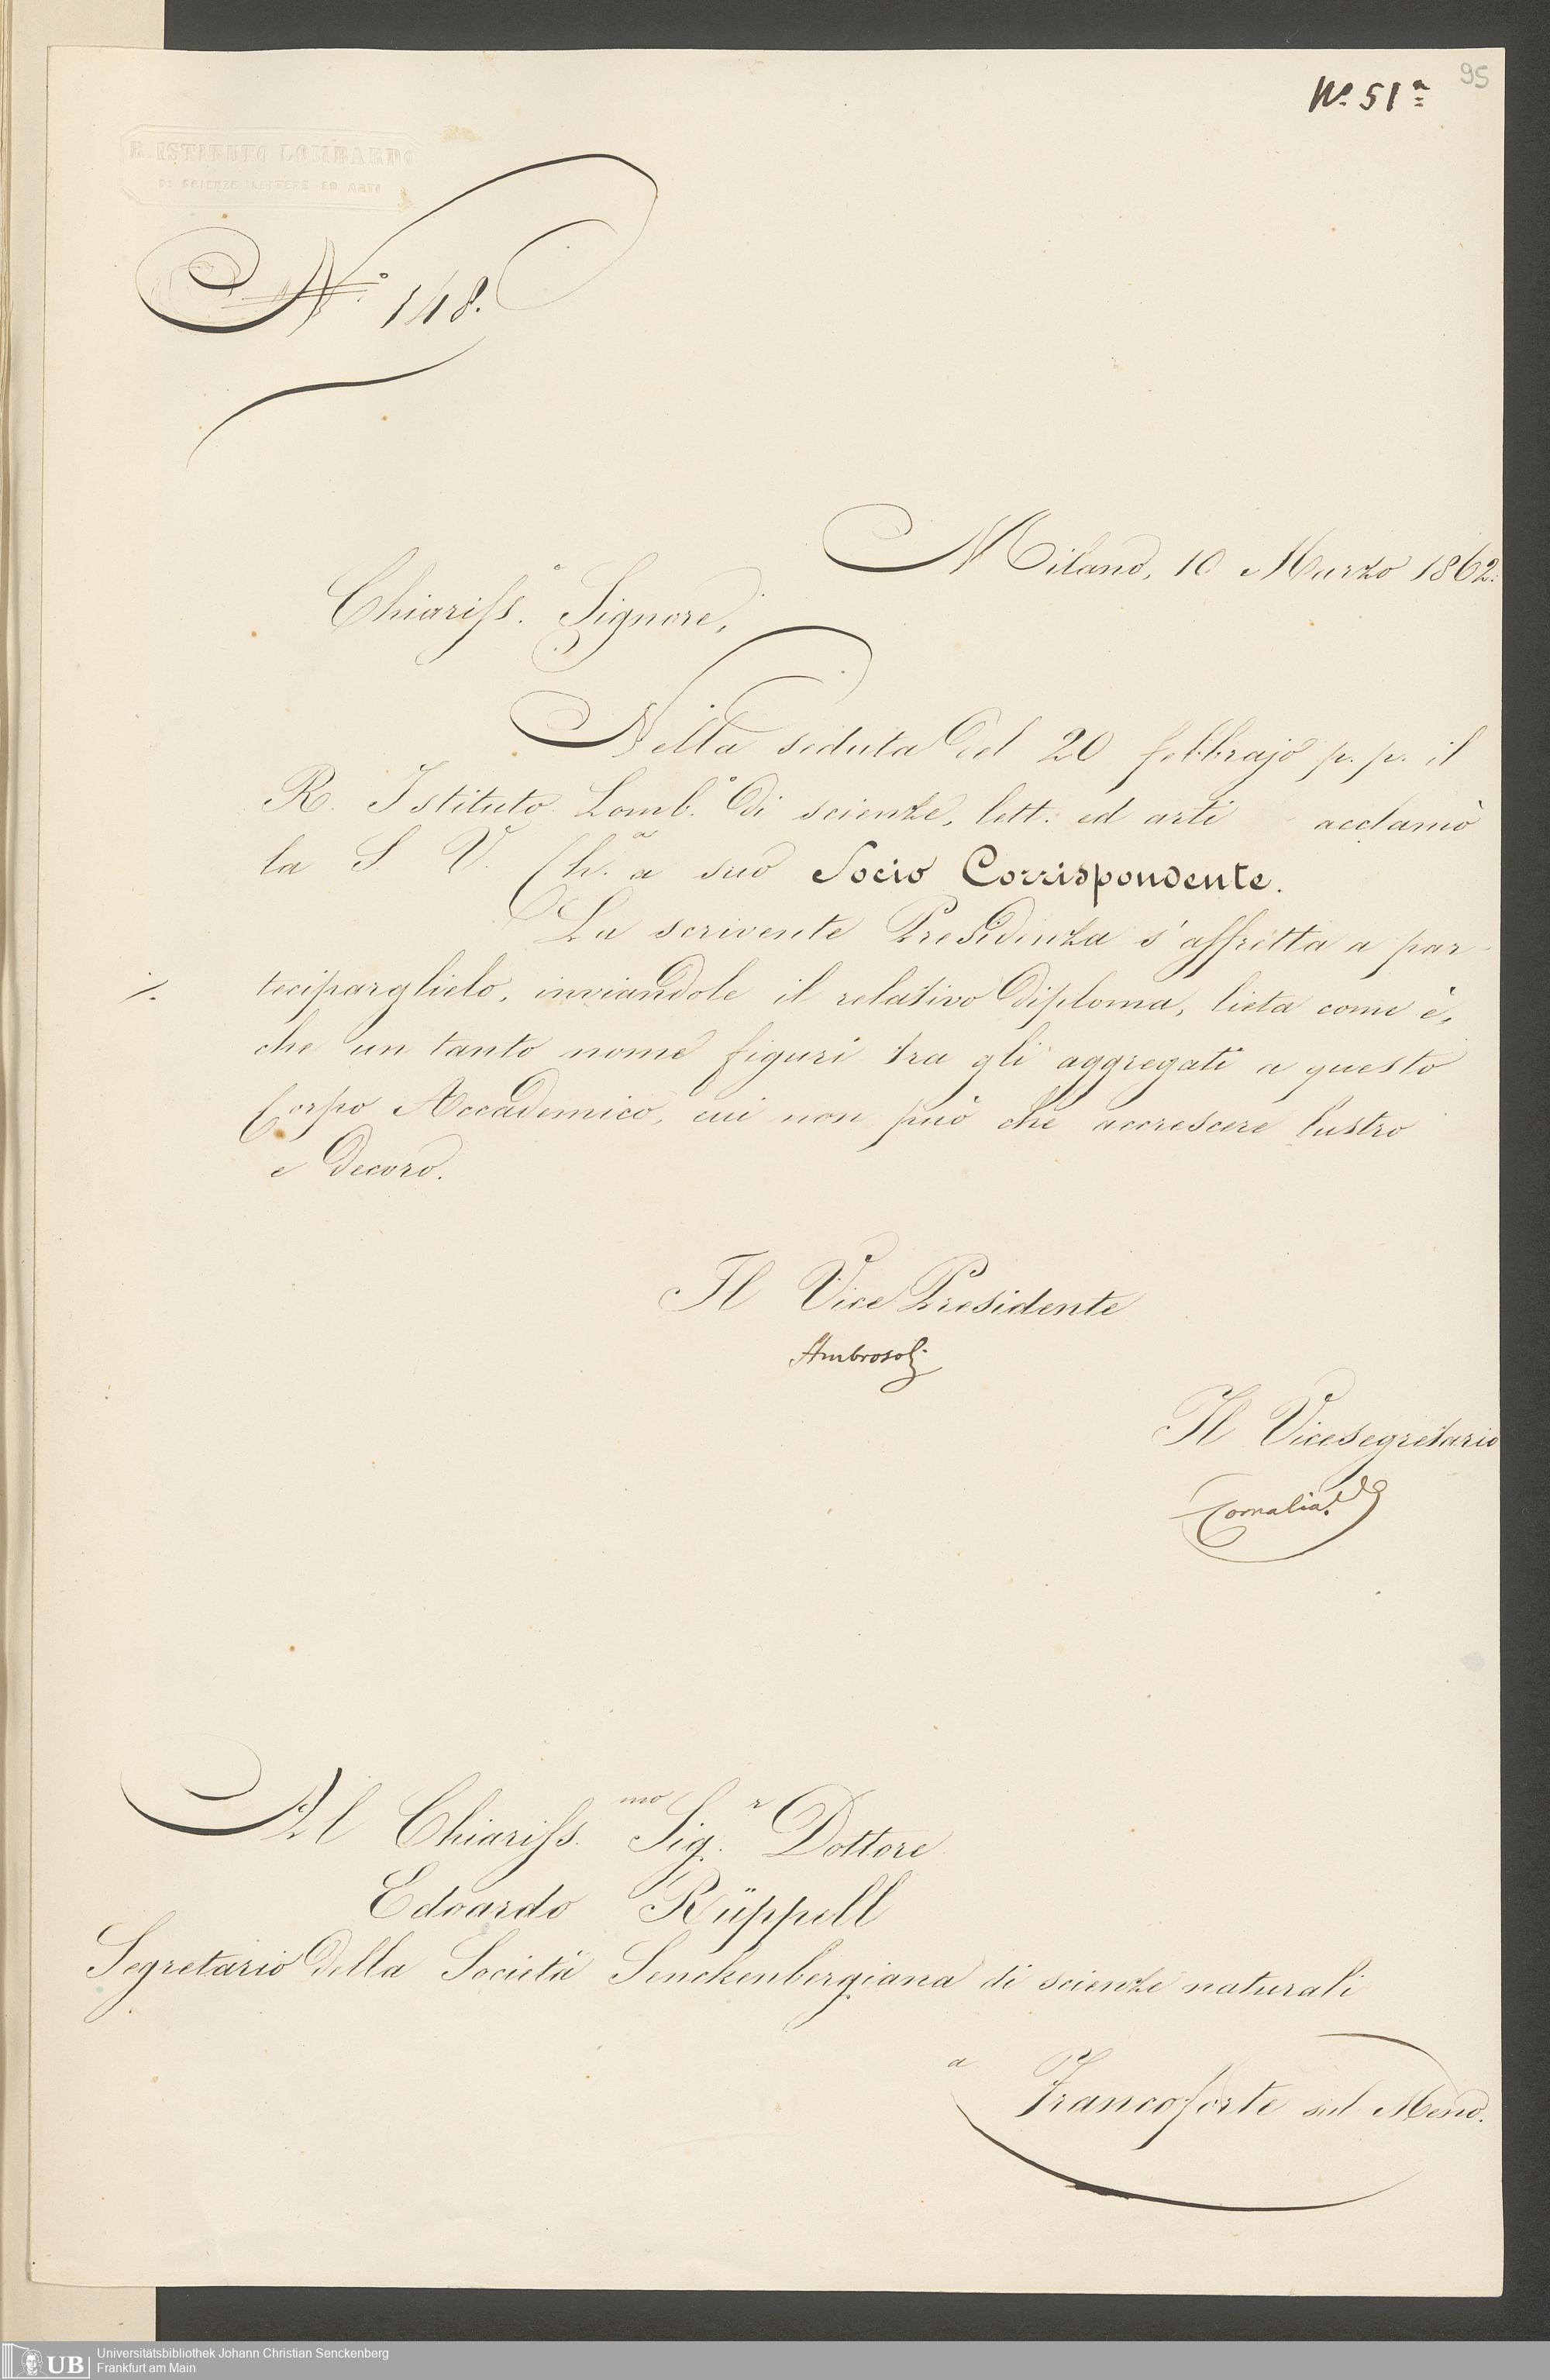 95
No. 51a
R. ISTITUTO LOMBARDO
DI SCIENZE LETTERE ED ARTI
N.° 148.
Milano, 10 Marzo 1862.
Chiariss.° Signore,
Nella seduta del 20 febbrajo p. p. il
R. Istituto Lomb.° di scienze, lett. ed arti acclamò
la S. V. Ch.a a suo Socio Corrispondente.
La scrivente Presidenza s'affretta a par-
teciparglielo, inviandole il relativo diploma, lieta come è,
che un tanto nome figuri tra gli aggregati a questo
Corpo Accademico, cui non può che accrescere lustro
e decoro.
Il Vice Presidente
Ambrosoli
Il Vicesegretario
Cornalia
Al Chiariss.mo Sig.r Dottore
Edoardo Rüppell
Segretario della Società Senckenbergiana di scienze naturali
a Francoforte sul Meno.
UB
Universitätsbibliothek Johann Christian Senckenberg
Frankfurt am Main